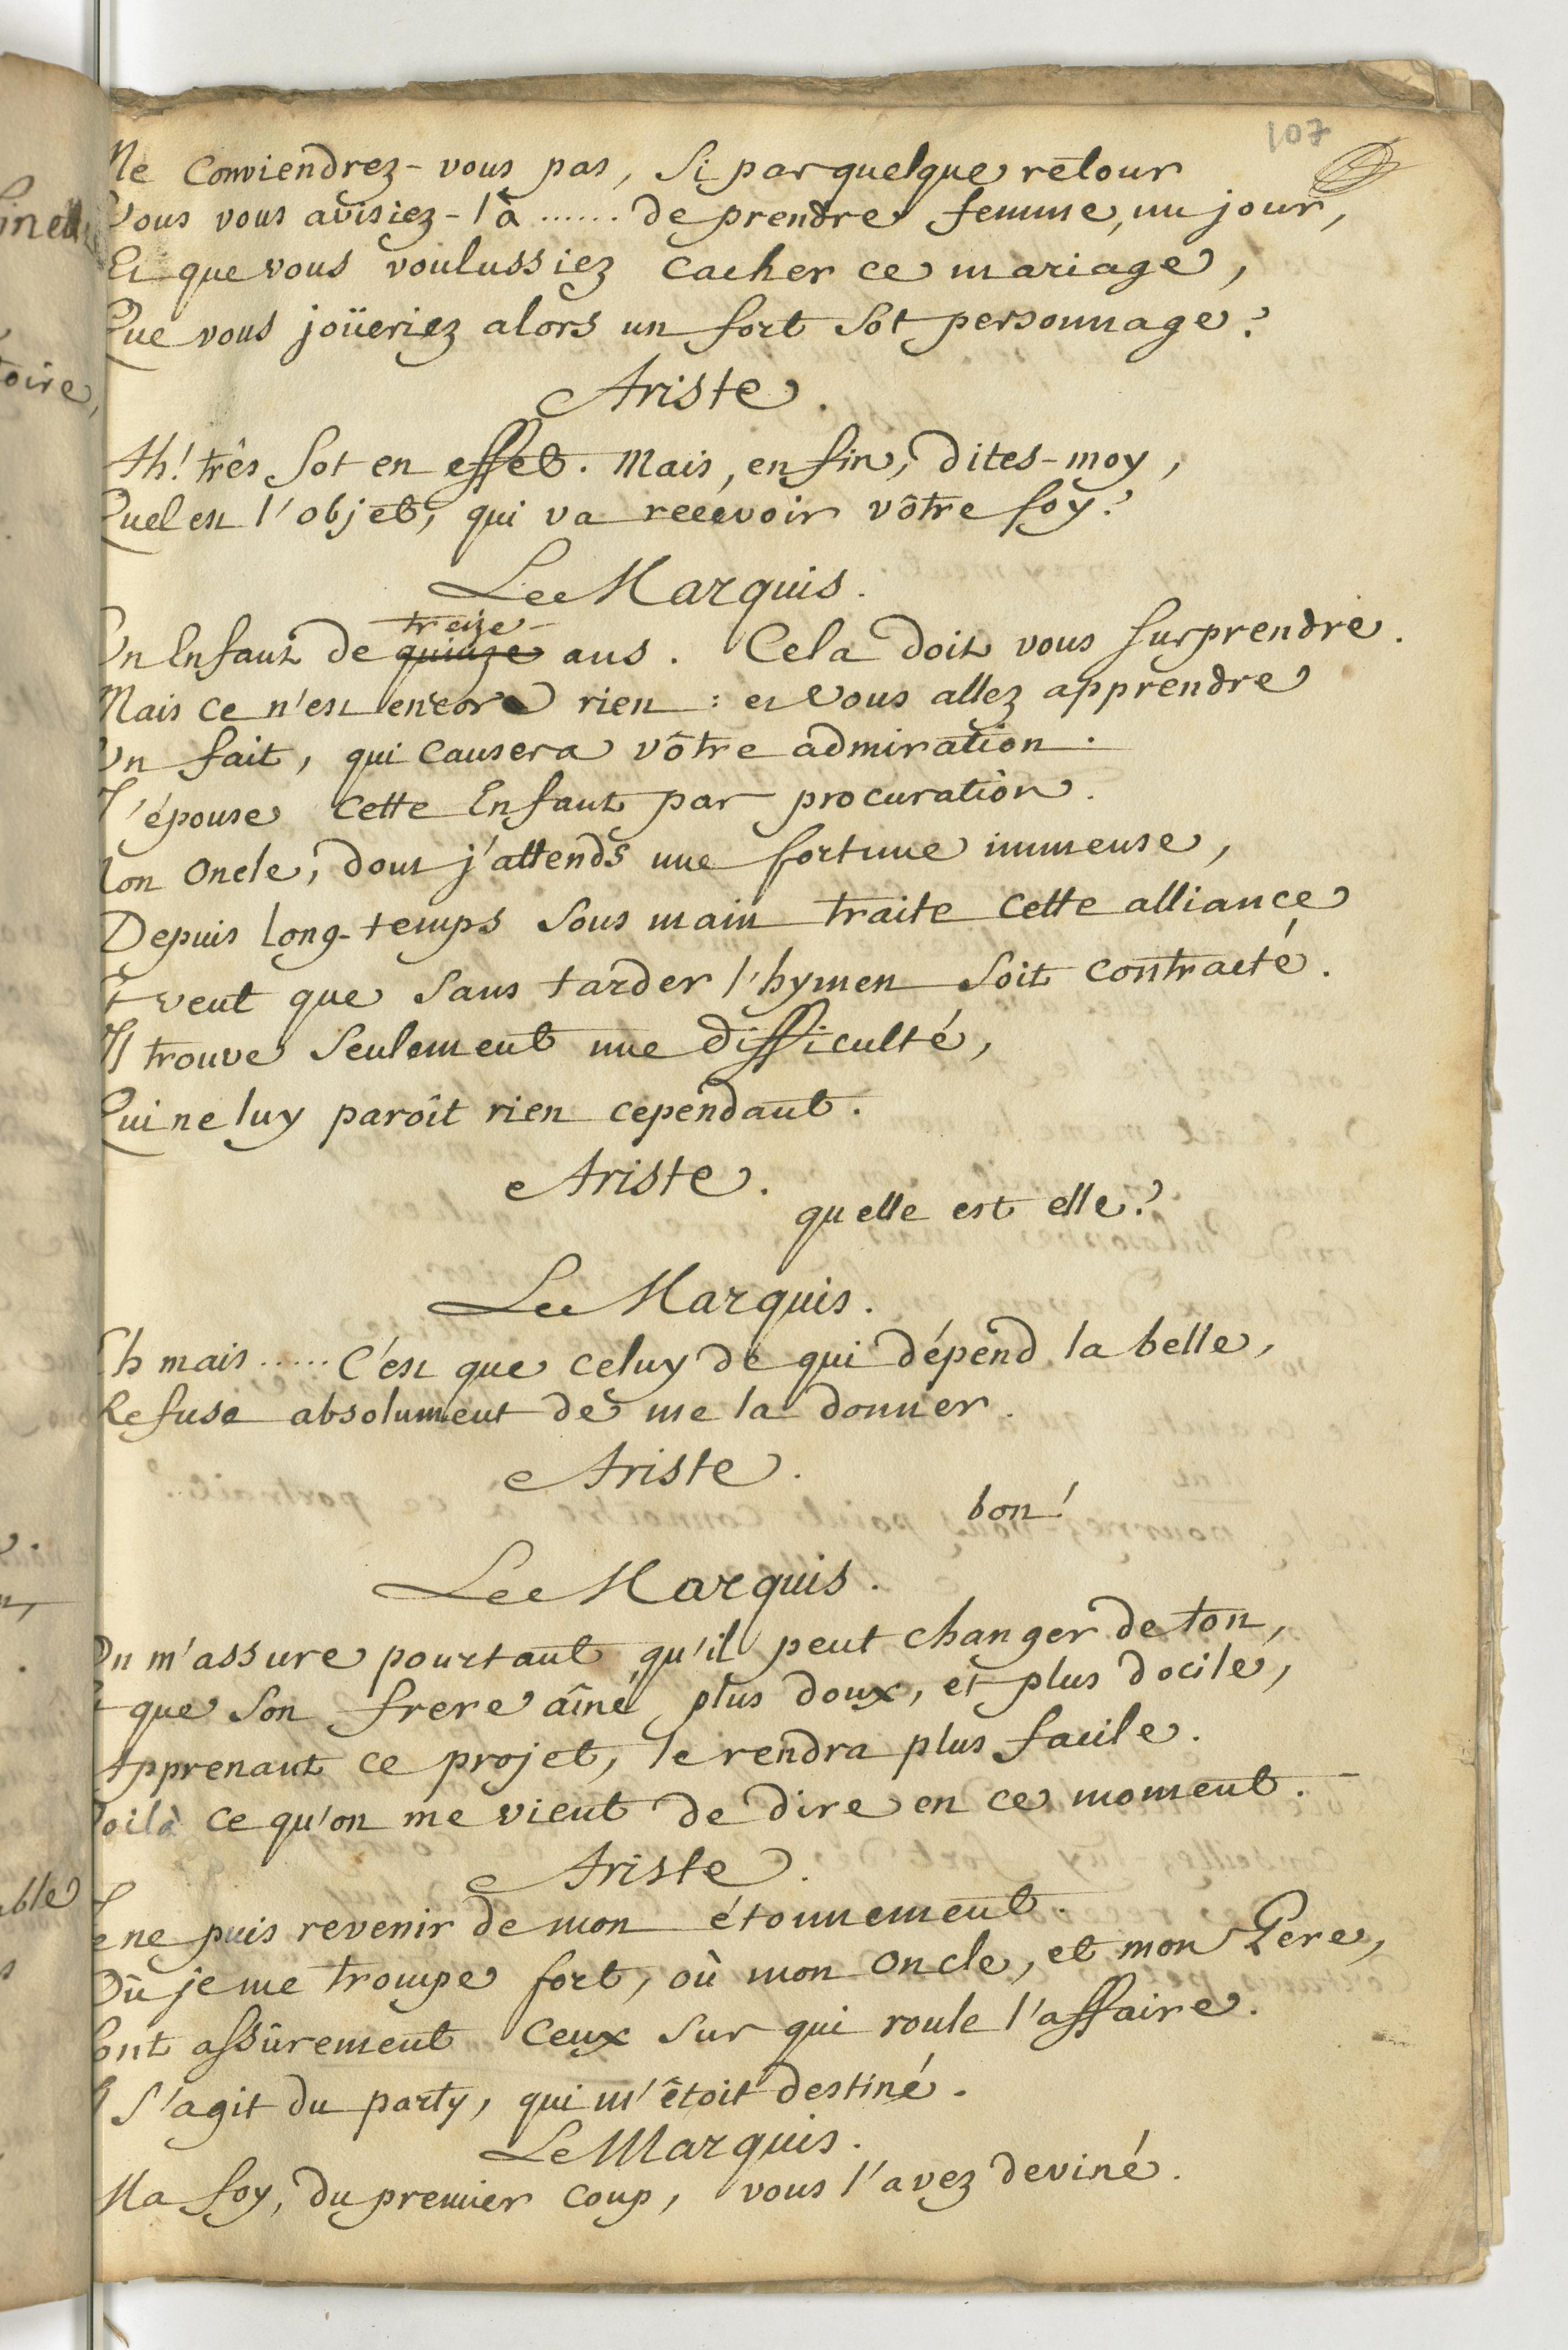 107
Ne Conviendrez-vous pas, Si par quelque retour
Vous vous avisiez-là ...... de prendre femme, un jour,
Et que vous voulussiez Cacher ce mariage,
Que vous joüeriez alors un fort Sot personnage?
Ariste.
Ah! três Sot en effet. Mais, enfin, dites-moy,
Quel est l'objet, qui va recevoir vôtre foy?
Le Marquis.
treize
Un Enfant de quinze ans. Cela doit vous surprendre.
Mais ce n'est encore rien : et Vous allez apprendre
Un fait, qui Causera vôtre admiration.
J'épouse Cette Enfant par procuration.
Mon Oncle, dont j'attends une fortune immense,
Depuis long-temps Sous main traite Cette alliance
Et veut que Sans tarder l'hymen Soit contracté.
Il trouve Seulement une difficulté,
Qui ne luy paroît rien cependant.
Ariste.
quelle est elle?
Le Marquis.
Eh mais ...... C'est que celuy de qui dépend la belle,
Refuse absolument de me la donner.
Ariste.
bon!
Le Marquis.
On m'assure pourtant qu'il peut changer de ton,
Et que Son frere aîné, plus doux, et plus docile,
Apprenant ce projet, le rendra plus facile.
Voilà ce qu'on me vient de dire en ce moment.
Ariste.
Je ne puis revenir de mon étonnement.
Où je me trompe fort, où mon Oncle, et mon Pere,
Sont assûrement Ceux Sur qui roule l'affaire.
Il S'agit du party, qui m'étoit destiné.
Le Marquis.
Ma foy, du premier Coup, vous l'avez deviné.